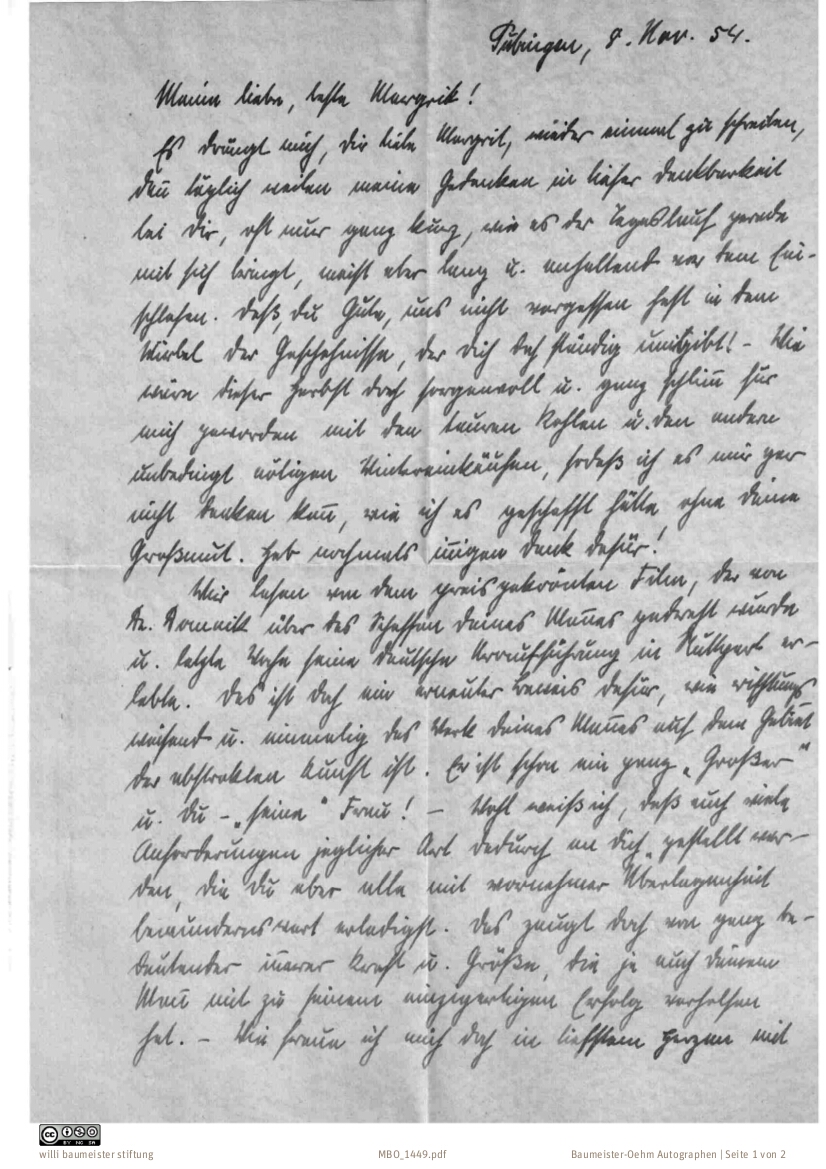 Tübingen, 8. Nov. 54.
Meine liebe, beste Margrit!
Es drängt mich, dir liebe Margrit, wieder einmal zu schreiben,
den̄ täglich weilen meine Gedanken in tiefer Dankbarkeit
bei Dir, oft nur ganz kurz, wie es der Tageslauf gerade
mit sich bringt, meist aber lang u. anhaltend vor dem Ein-
schlafen. Daß du Gute, uns nicht vergessen hast in dem
Wirbel der Geschehnisse, der dich doch ständig umgibt! - Wie
wäre dieser Herbst doch sorgenvoll u. ganz schlim̄ für
mich geworden mit den teuren Kohlen u. den andern
unbedingt nötigen Wintereinkäufen, sodaß ich es mir gar
nicht denken kan̄, wie ich es geschafft hätte, ohne deine
Großmut. Hab nochmals in̄igen Dank dafür!
Wir lasen von dem preisgekrönten Film, der von
Dr. Domnick über das Schaffen deines Man̄es gedreht wurde
u. letzte Woche seine deutsche Uraufführung in Stuttgart er-
lebte. Das ist doch ein erneuter Beweis dafür, wie richtungs-
weisend u. einmalig das Werk deines Man̄es auf dem Gebiet
der abstrakten Kunst ist. Er ist schon ein ganz „Großer"
u. du - „seine" Frau! - Wohl weiß ich, daß auch viele
Anforderungen jeglicher Art dadurch an dich gestellt wer-
den, die du aber alle mit vornehmer Überlegenheit
bewundernswert erledigst. Das zeugt doch von ganz be-
deutender in̄erer Kraft u. Größe, die ja auch deinem
Man̄ mit zu seinem einzigartigen Erfolg verholfen
hat. - Wie freue ich mich doch in tiefstem Herzen mit
willi baumeister stiftung
MBO_1449.pdf
Baumeister-Oehm Autographen | Seite 1 von 2